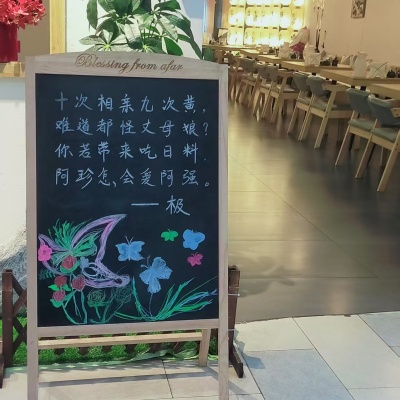 Blessing from afar
十次相亲九次黄,
难道都怪丈母娘?
你若带来吃日料.
阿珍怎,会爱阿强。
——极